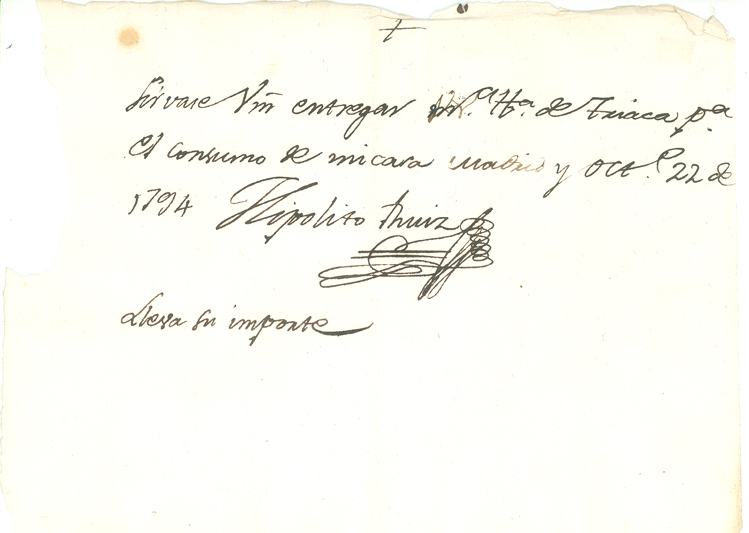 Sirvase Vm entregar de Triaca pa
el consumo de mi casa Madrid y Octe 22 de
1794 Hipolito Ruiz
Lleva su importe